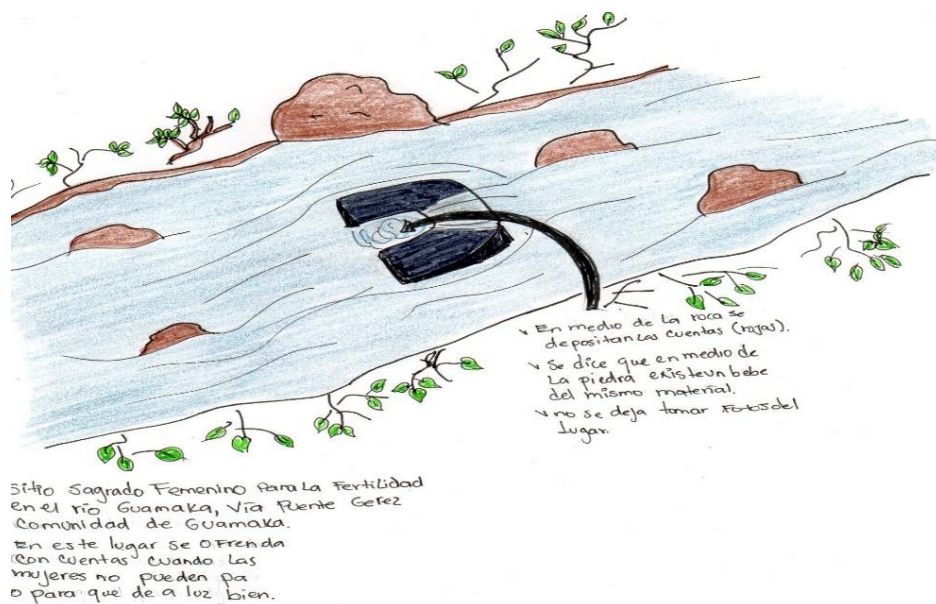 ✓ En medio de la roca se
depositan las cuentas (rojas).
✓ Se dice que en medio de
La piedra existe un bebe
del mismo material.
✓ no se deja tomar Fotos del
lugar.
Sitio Sagrado Femenino Para La Fertilidad
en el río Guamaka, Vía Puente Gerez
Comunidad de Guamaka.
En este lugar se OFrenda
Con cuentas cuando Las
mujeres no pueden pa
o para que de a luz bien.